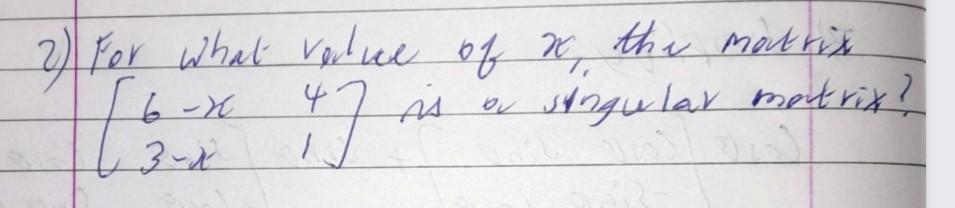 2) For what value of x, the matrix
[6-x 4
3-x 1] is a singular matrix?